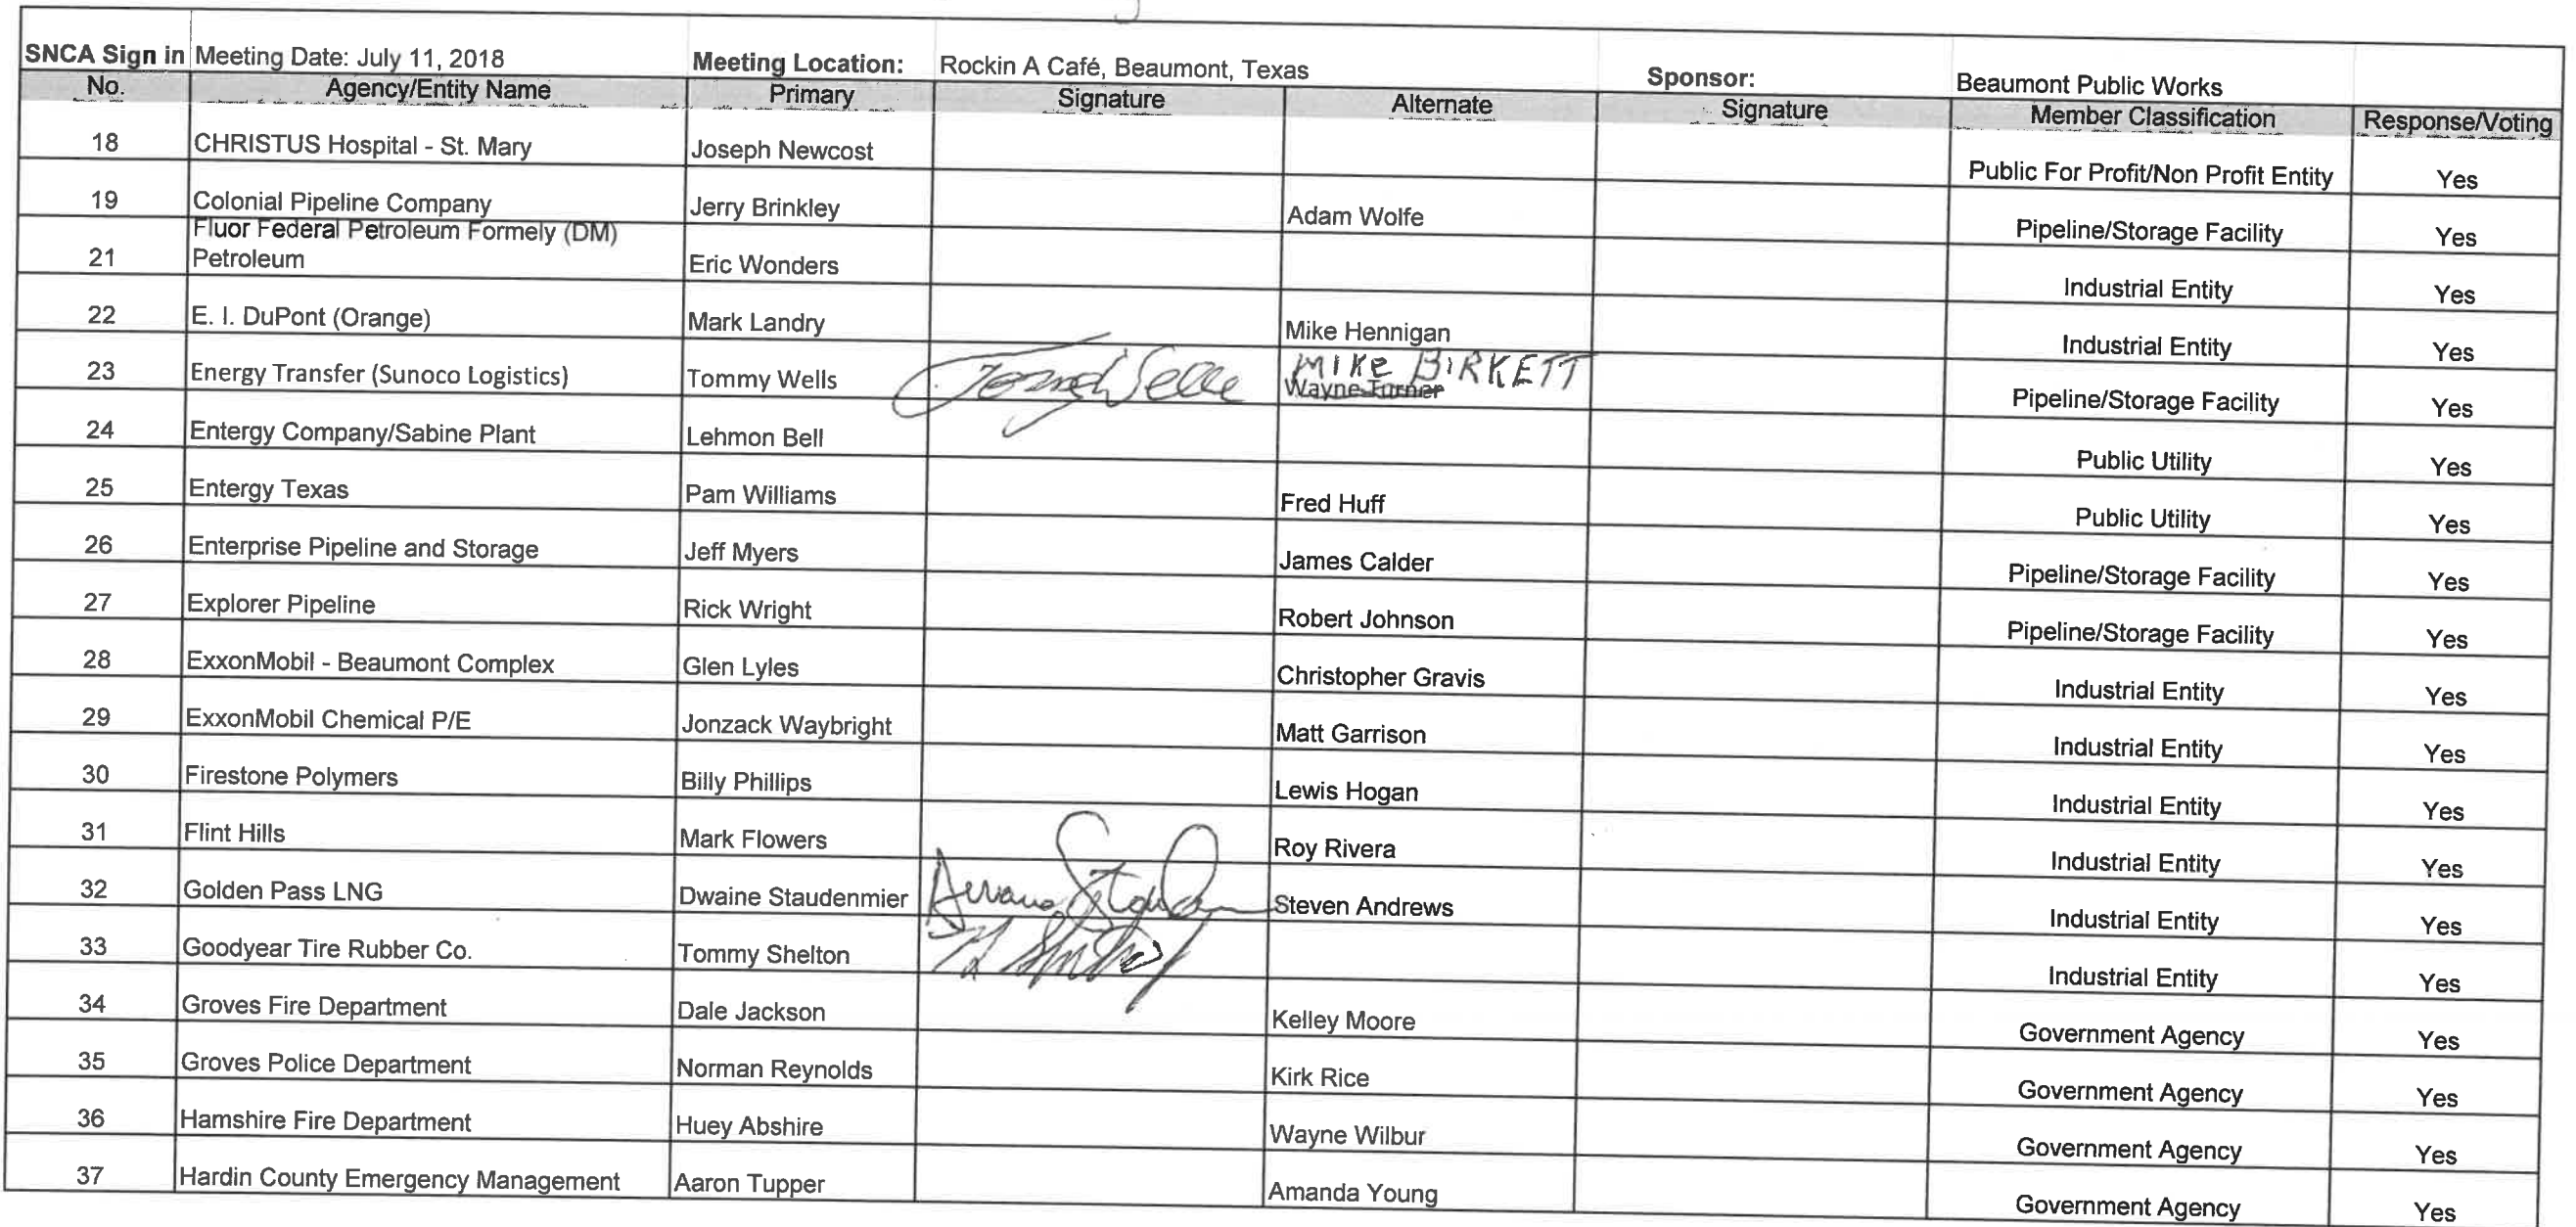 SNCA Sign in Meeting Date: July 11, 2018 Meeting Location: Rockin A Café, Beaumont, Texas Sponsor: Beaumont Public Works
No. Agency/Entity Name Primary Signature Alternate Signature Member Classification Response/Voting
18 CHRISTUS Hospital - St. Mary Joseph Newcost Public For Profit/Non Profit Entity Yes
19 Colonial Pipeline Company Jerry Brinkley Adam Wolfe Pipeline/Storage Facility Yes
Fluor Federal Petroleum Formely (DM)
21 Petroleum Eric Wonders Industrial Entity Yes
22 E. I. DuPont (Orange) Mark Landry Mike Hennigan Industrial Entity Yes
MIKE BIRKETT
23 Energy Transfer (Sunoco Logistics) Tommy Wells Wayne Turner Pipeline/Storage Facility Yes
24 Entergy Company/Sabine Plant Lehmon Bell Public Utility Yes
25 Entergy Texas Pam Williams Fred Huff Public Utility Yes
26 Enterprise Pipeline and Storage Jeff Myers James Calder Pipeline/Storage Facility Yes
27 Explorer Pipeline Rick Wright Robert Johnson Pipeline/Storage Facility Yes
28 ExxonMobil - Beaumont Complex Glen Lyles Christopher Gravis Industrial Entity Yes
29 ExxonMobil Chemical P/E Jonzack Waybright Matt Garrison Industrial Entity Yes
30 Firestone Polymers Billy Phillips Lewis Hogan Industrial Entity Yes
31 Flint Hills Mark Flowers Roy Rivera Industrial Entity Yes
32 Golden Pass LNG Dwaine Staudenmier Steven Andrews Industrial Entity Yes
33 Goodyear Tire Rubber Co. Tommy Shelton Industrial Entity Yes
34 Groves Fire Department Dale Jackson Kelley Moore Government Agency Yes
35 Groves Police Department Norman Reynolds Kirk Rice Government Agency Yes
36 Hamshire Fire Department Huey Abshire Wayne Wilbur Government Agency Yes
37 Hardin County Emergency Management Aaron Tupper Amanda Young Government Agency Yes